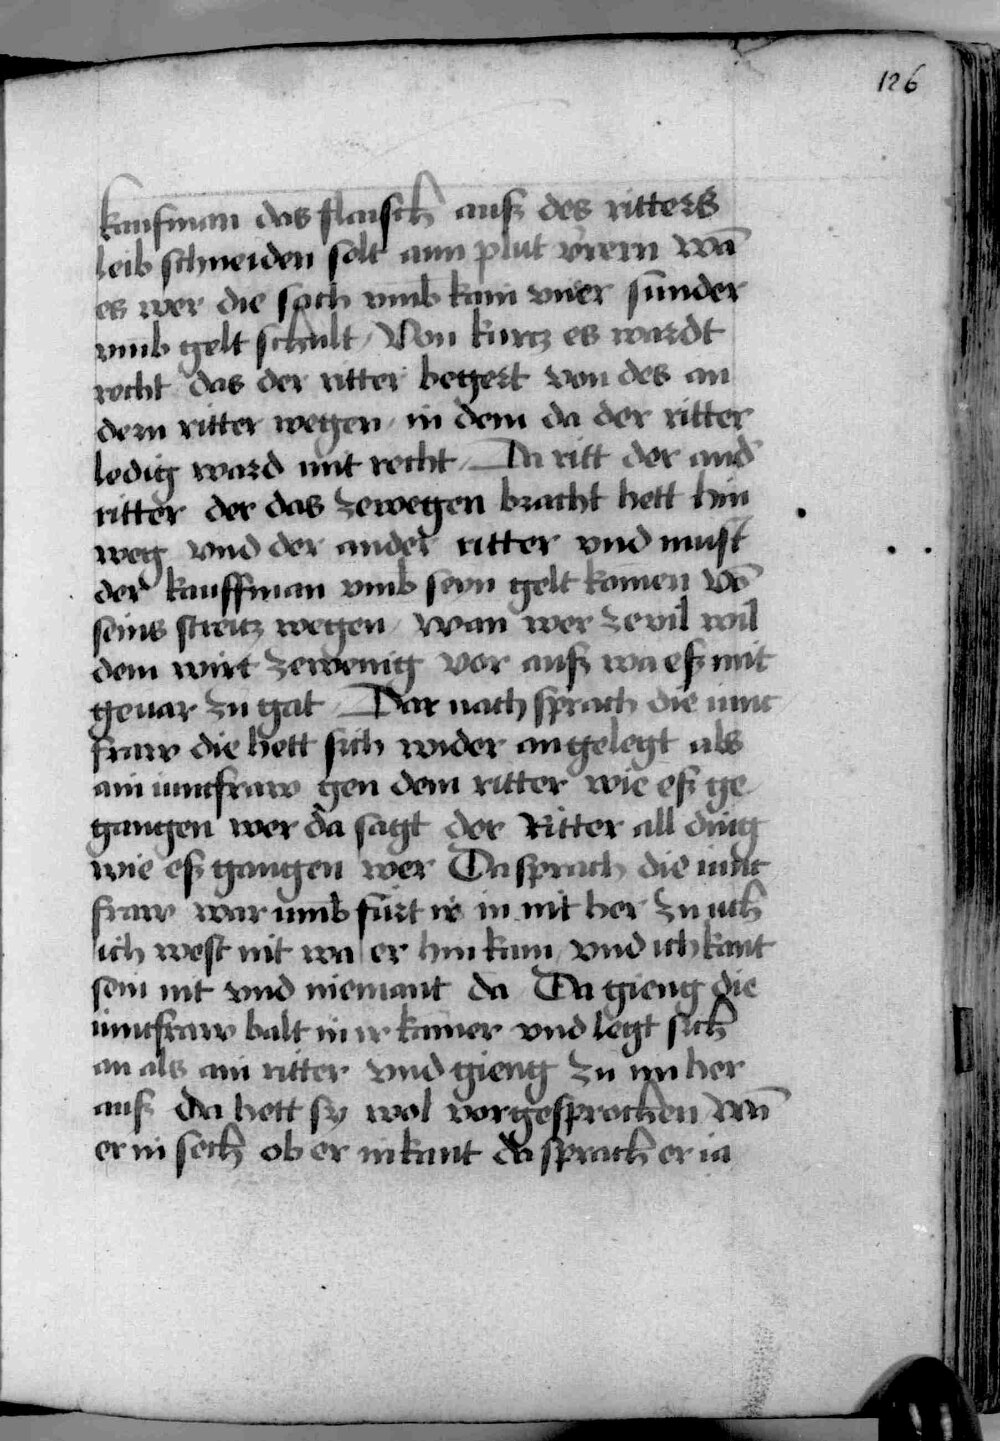 126
kaufman das flaisch auß des ritters
leib schneiden solt ann plut v̈rern wā
es wer die sach vmb kain vner sunder
vmb gelt schult / Von kurcz es wardt
recht das der ritter begert von des an
dern ritter wegen / in dem da der ritter
ledig ward mit recht / Da ritt der and
ritter der das zewegen bracht hett hin
weg vnd der ander ritter vnd must
der kauffman vmb seyn gelt komen vō
seins streitz wegen / wan wer ze vil wil
dem wirt zewenig vor auß wa eß mit
geuar zu gat / Dar nach sprach die iunc
fraw die hett sich wider angelegt als
ain iuncfraw gen dem ritter wie eß ge
gangen wer da sagt der Ritter all ding
wie eß gangen wer Da sprach die iunc
fraw war umb furt ir in nit her zu uch
ich west nit wa er hin kam / vnd ich kant
sein nit vnd niemant da Da gieng die
iuncfraw balt in ir kamer vnd legt sich
an als ain ritter vnd gieng zu im her
auß da hett sy wol vorgesprochen wan
er in sech ob er in kant da sprach er ia